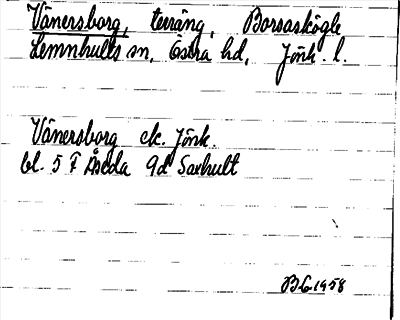 Vänersborg, terräng, Borsaskögle
Lemnhults sn, Östra hd, Jönk. l.
Vänersborg ek. Jönk.
bl. 5 F Åseda 9d Saxhult
BG 1958